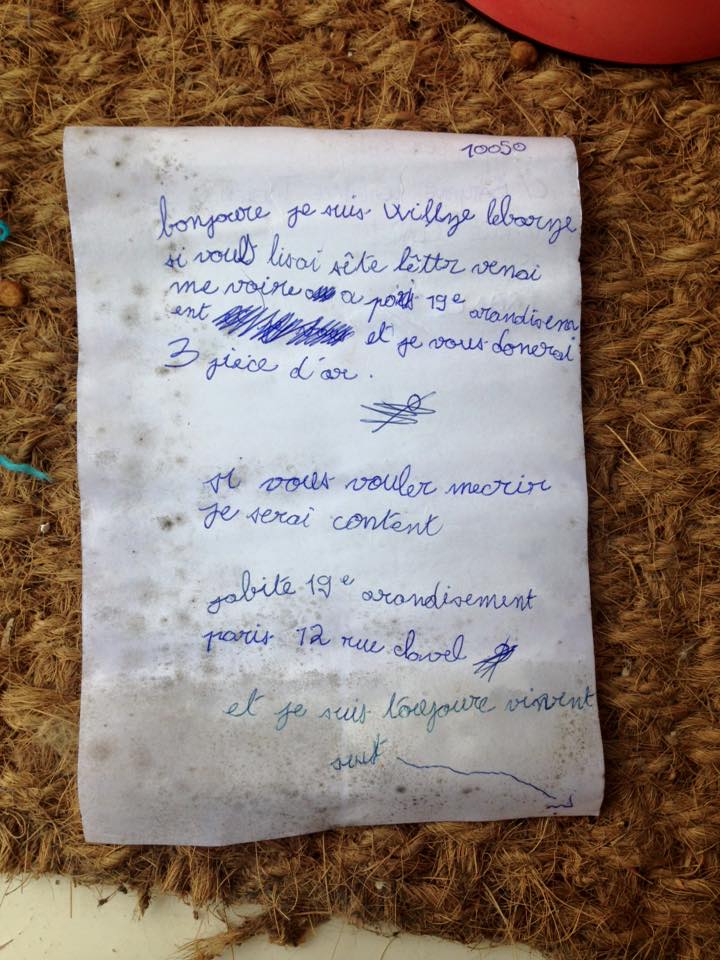 10050
bonjoure je suis Willye leborye
si vous lisai sête lêttr venai
me voire a paris 19e arandisem
ent et je vous donerai
3 piece d'or.
si vous vouler mecrir
je serai content
jabite 19e arandisement
paris 12 rue clavel
et je suis toujoure vivent
suit